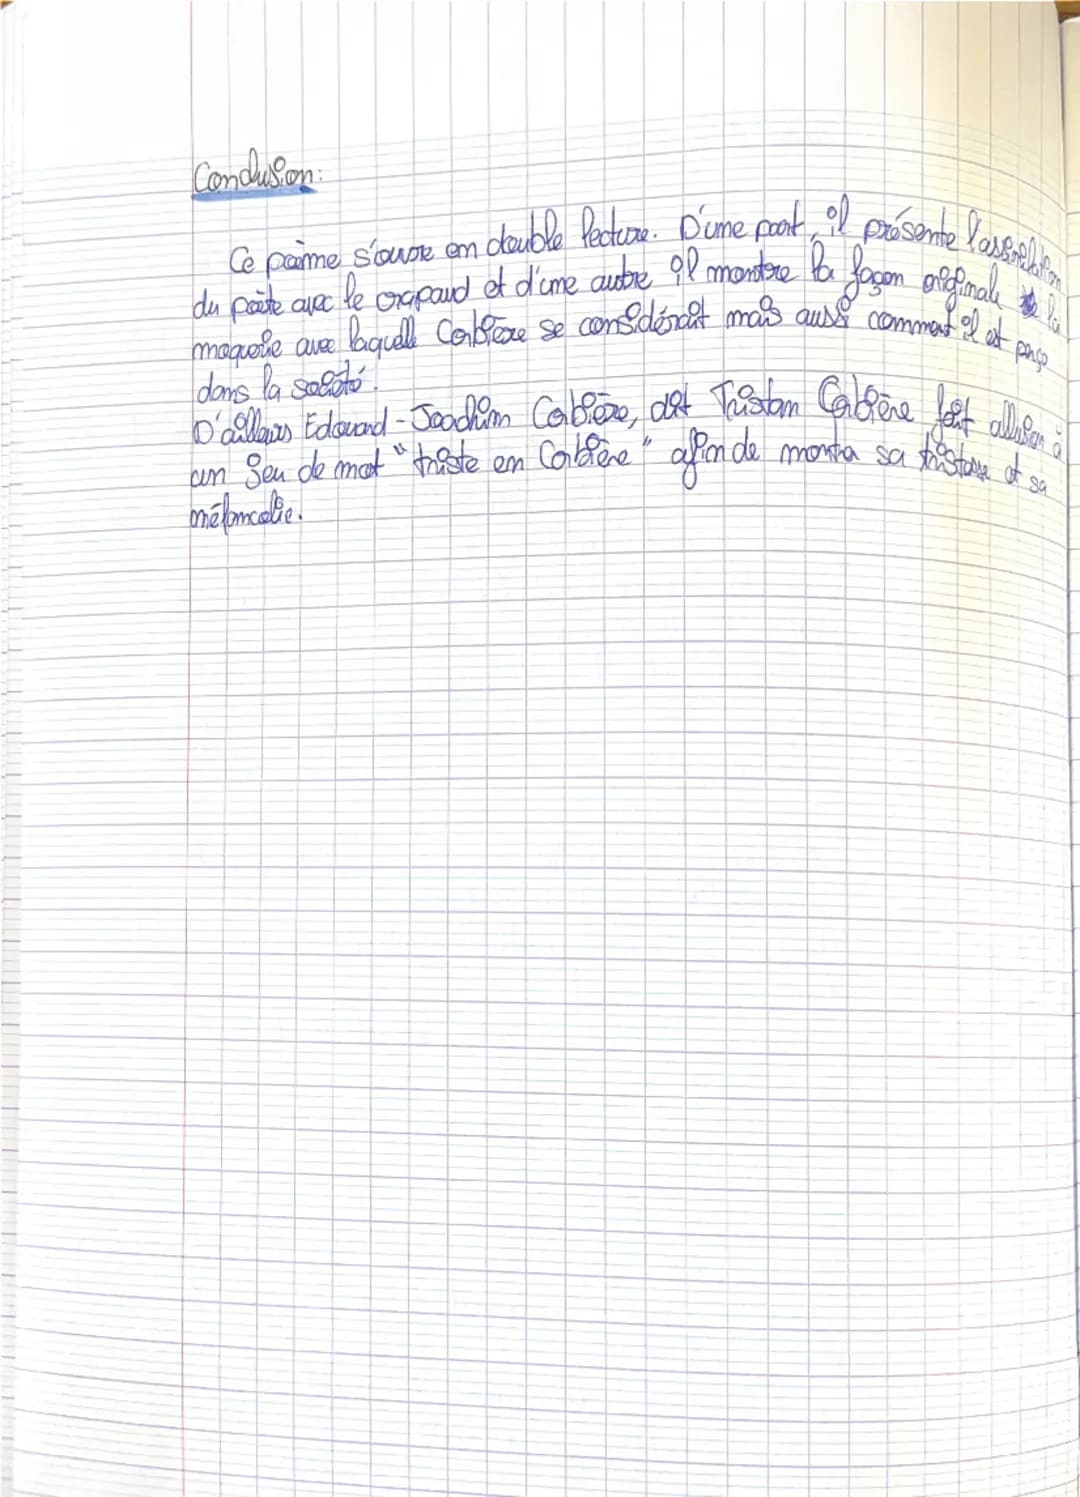 Conclusion:
Ce poème s'ouvre en double lecture. D'une part, il présente l'assimilation
du poète avec le crapaud et d'une autre il montre la façon originale la
moquerie avec laquelle Corbière se considérait mais aussi comment il est perçu
dans la société.
D'ailleurs Edouard-Joachim Corbière, dit Tristan Corbière fait allusion à
un jeu de mot "triste en Corbière" afin de montrer sa tristesse et sa
mélancolie.